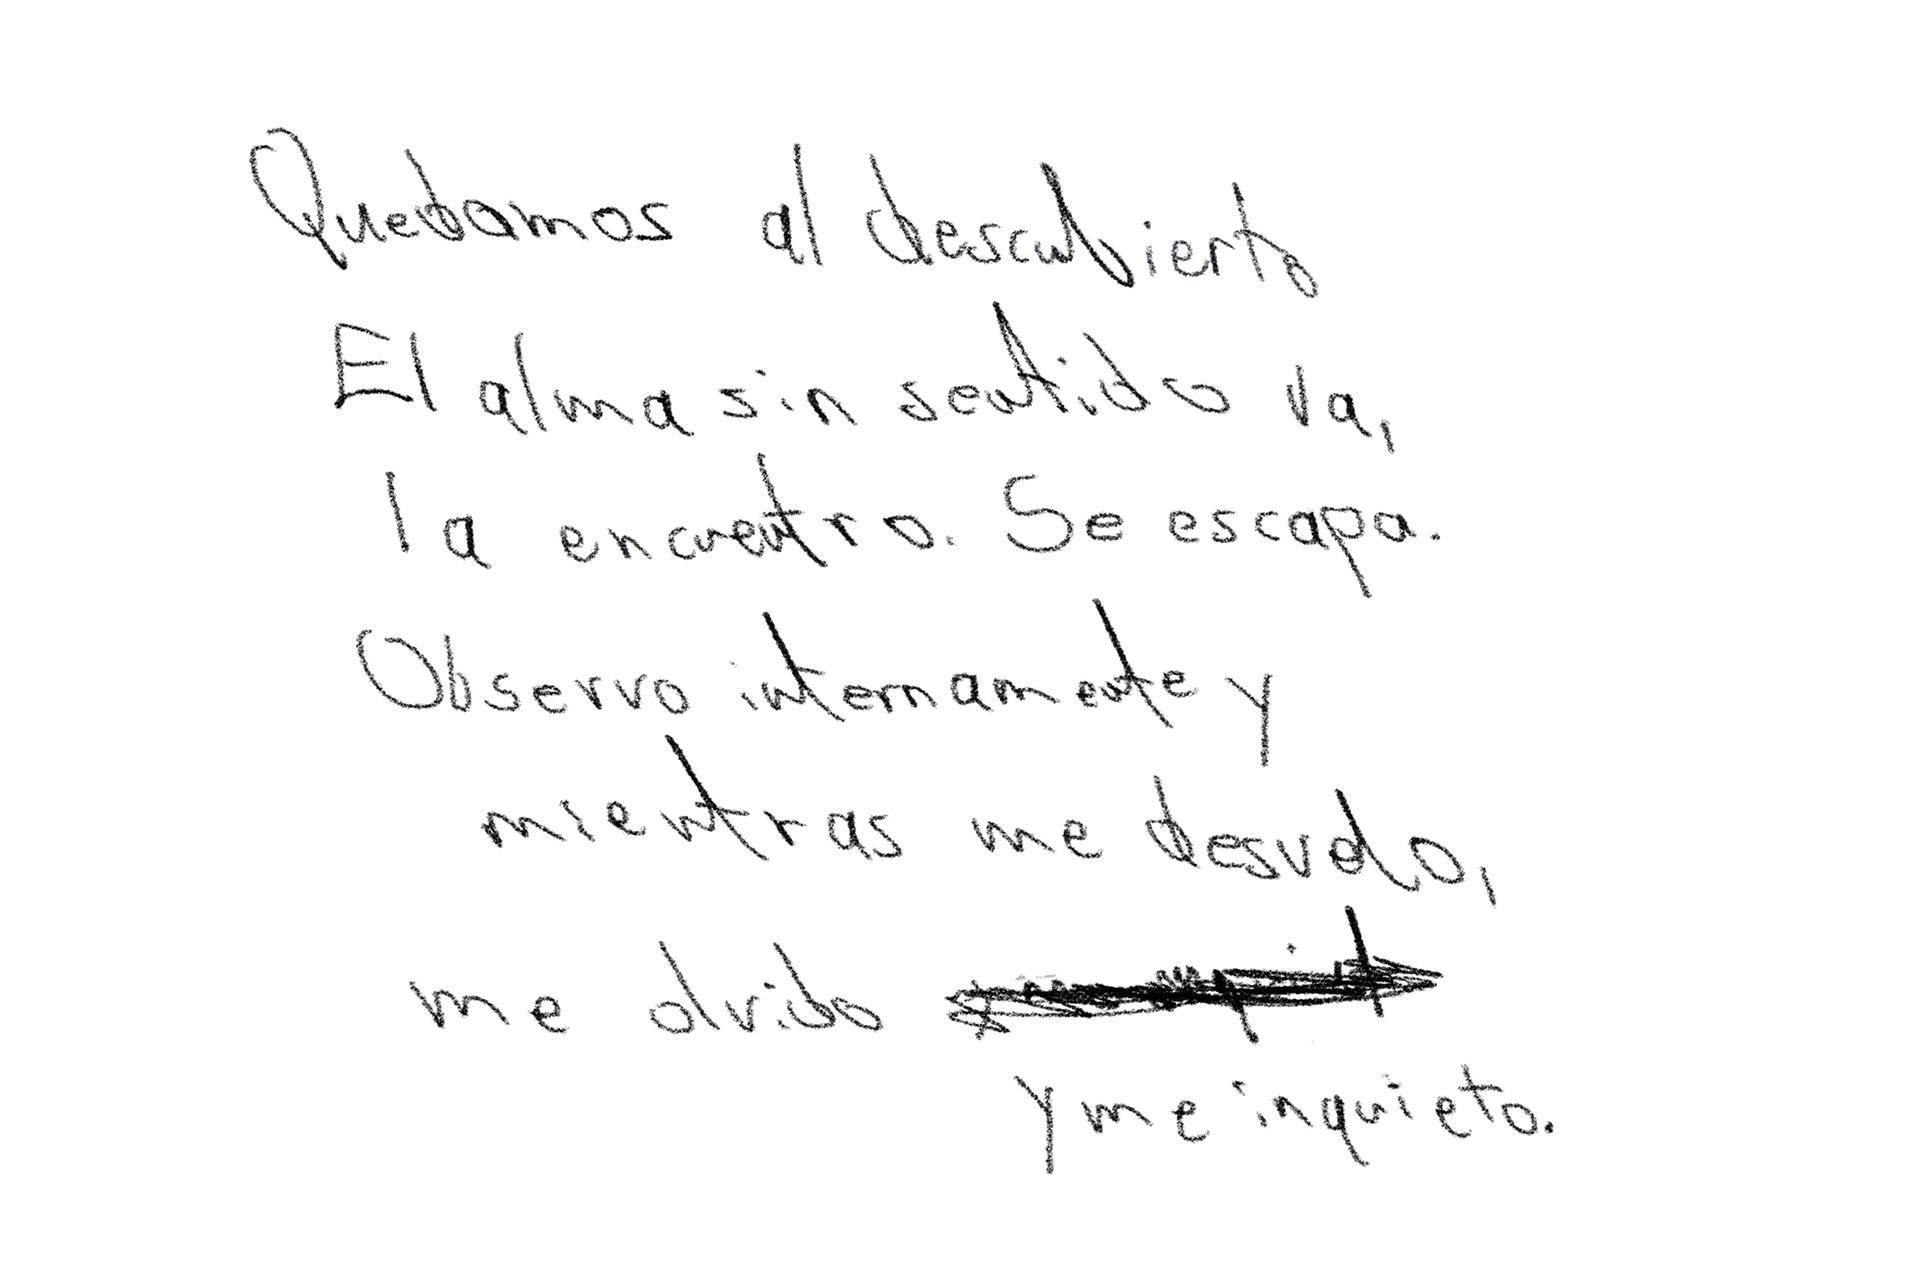 Quedamos al descubierto
El alma sin sentido va,
la encuentro. Se escapa.
Observo internamente y
mientras me desvelo,
me olvido
y me inquieto.